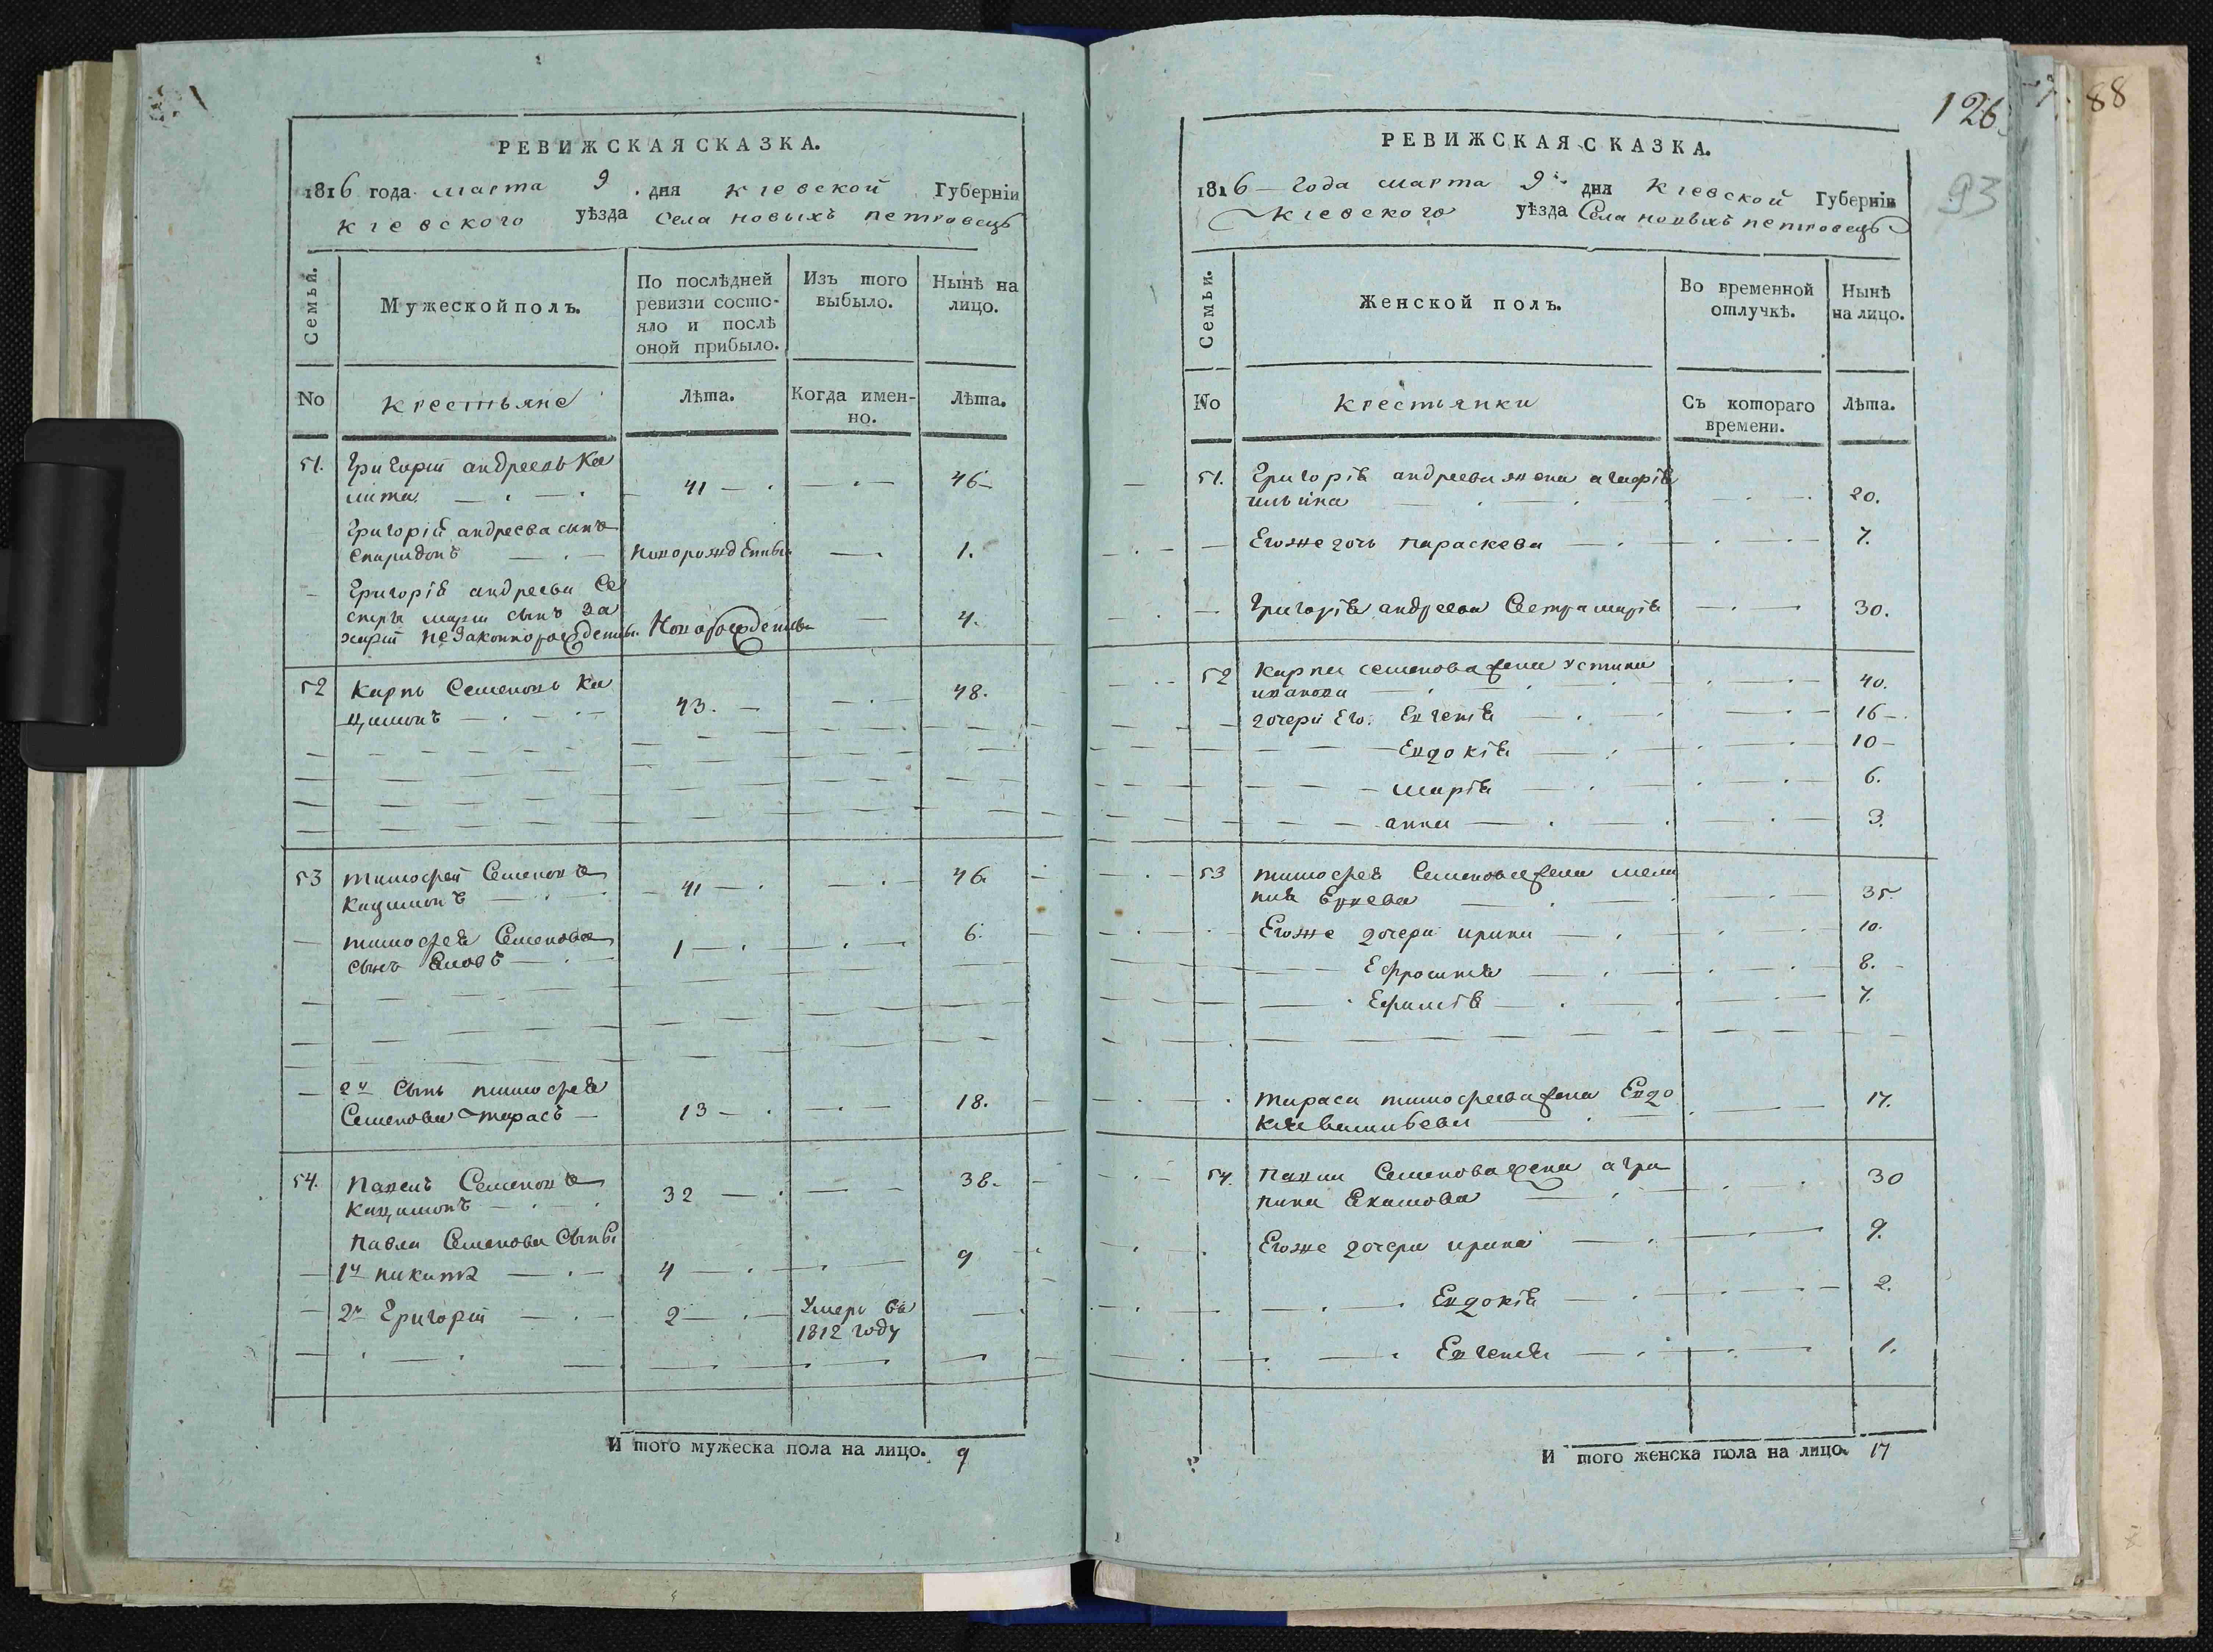 РЕВИЖСКАЯ СКАЗКА.
1816 года марта 9 дня Кіевской Губерніи
Кіевского уѣзда Села новыхъ петровецъ
Семьи.
Мужеской полъ.
По послѣдней
ревизіи состо-
яло и послѣ
оной прибыло.
Изъ того
выбыло.
Нынѣ на
лицо.
No
Крестьяне
Лѣта.
Когда имен-
но.
Лѣта.
51. Григорій андреевъ Ка
лита 41 46
Григорій андреева сынъ
Спиридонъ новорожденны 1.
Григорія андреева Се
стры марии сынъ За
харій незаконнорожденны. Новорожденны 4.
52 Карпъ Семеновъ Ка
цимонъ 43. 48.
53 тимофей Семеновъ
Кацимонъ 41 46
тимофея Семенова
сынъ 1 6.
2й Сынъ тимофея
Семенова тарасъ 13 18.
54. Павелъ Семеновъ
Кацимонъ 32 38.
Павла Семенова Сынъ
1й никита 4 9
2й Григорій 2 Умеръ въ
1812 году
И того мужеска пола на лицо. 9
126.
88
93
РЕВИЖСКАЯ СКАЗКА.
1816 года марта 9 дня Кіевской Губерніи
Кіевского уѣзда Села новыхъ петровецъ
Семьи.
Женской полъ.
Во временной
отлучкѣ.
Нынѣ
на лицо.
No
Крестьянки
Съ котораго
времени.
Лѣта.
51. Григорія андреева жена агафія
ильина 20.
Егоже дочь параскева 7.
Григорія андреева Сестра марія 30.
52 Карпа семенова жена устина
иванова 40.
дочери Его: Евгенія 16
Евдокія 10
марія 6.
анна 3.
53 тимофея Семенова жена мела
нія 35.
Егоже дочери ирина 10.
Ефросинія 8.
Ефимія 7.
тараса тимофеева жена Евдо
кія 17.
54. Павла Семенова жена агри
пина Екимова 30
Егоже дочери ирина 9.
Евдокія 2.
Евгенія 1.
И того женска пола на лицо. 17